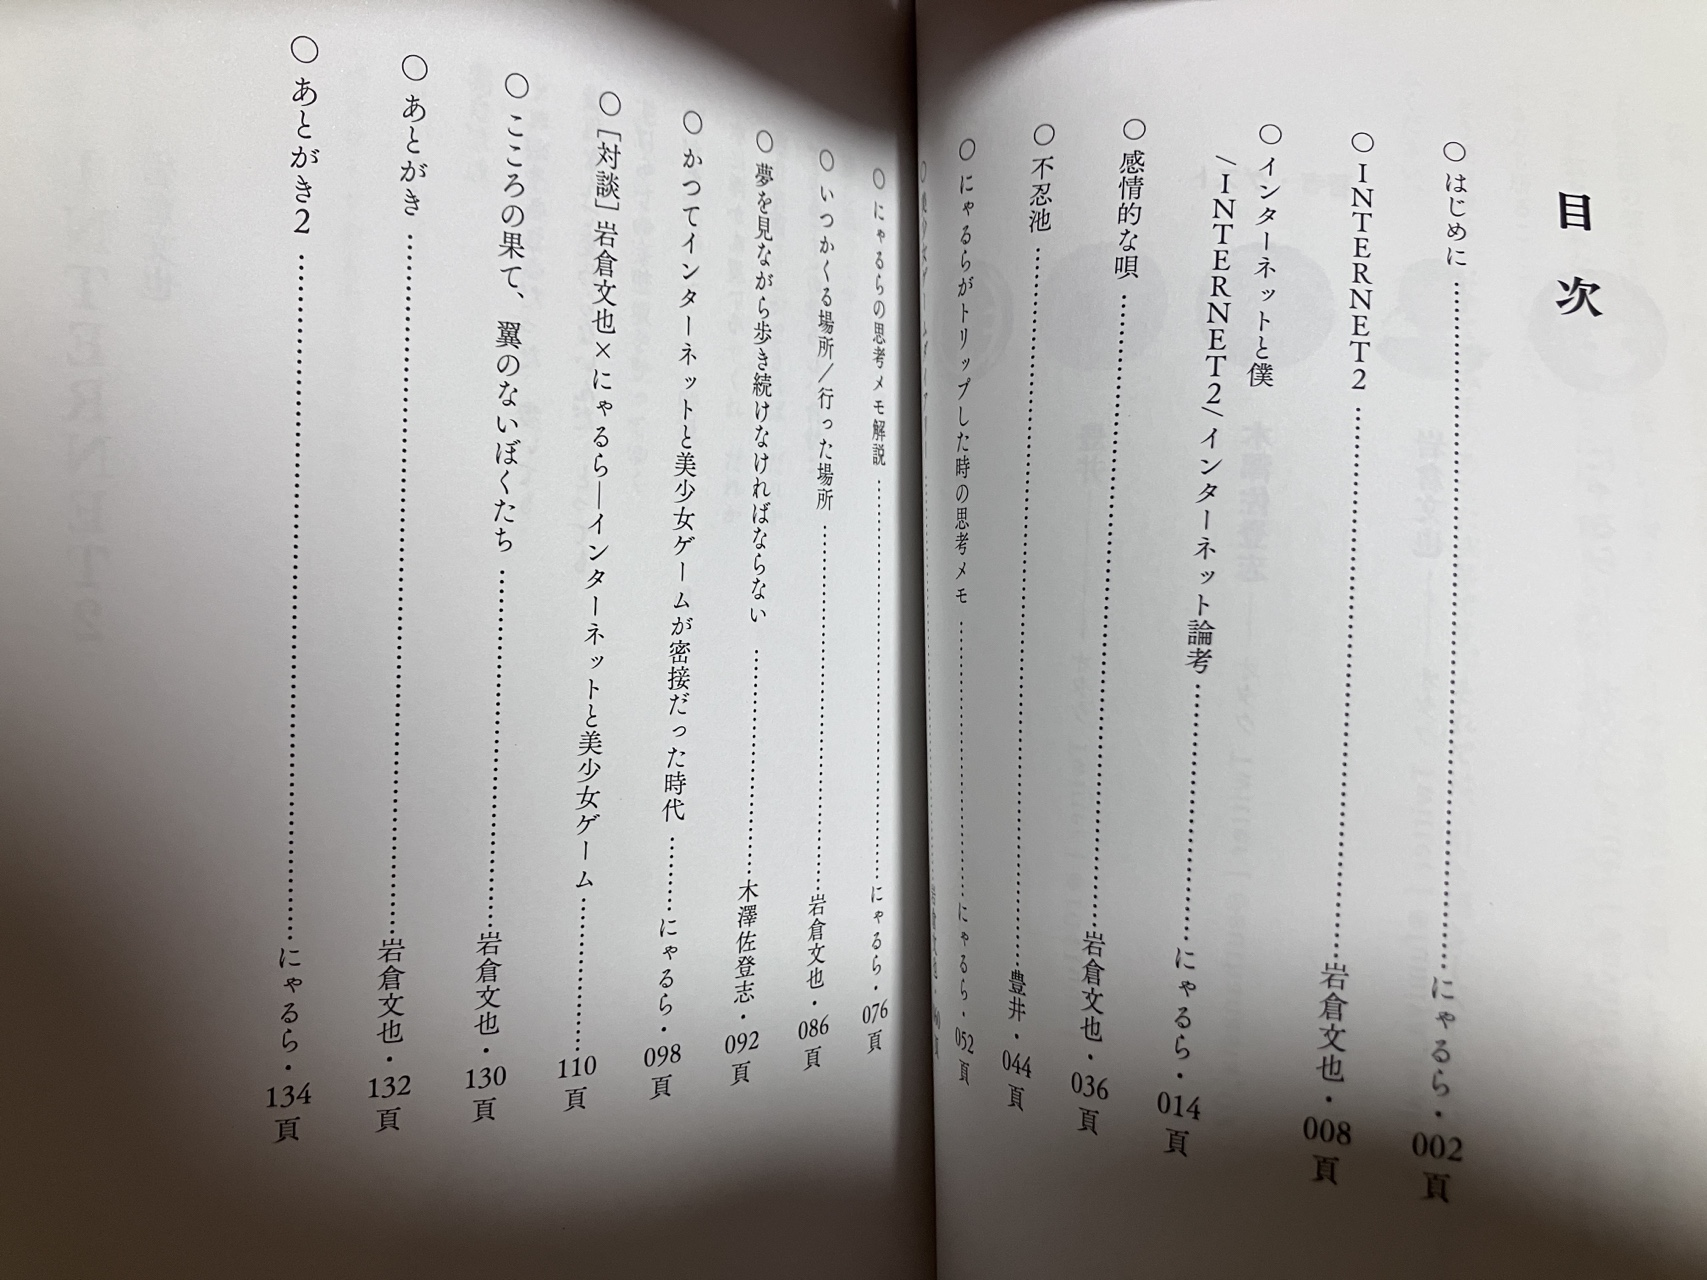 目次
○はじめに……にゃるら・002頁
○INTERNET2……岩倉文也・008頁
○インターネットと僕
／INTERNET2／インターネット論考……にゃるら・014頁
○感情的な唄……岩倉文也・036頁
○不忍池……豊井・044頁
○にゃるらがトリップした時の思考メモ……にゃるら・052頁
○にゃるらの思考メモ解説……にゃるら・076頁
○いつかくる場所／行った場所……岩倉文也・086頁
○夢を見ながら歩き続けなければならない……木澤佐登志・092頁
○かつてインターネットと美少女ゲームが密接だった時代……にゃるら・098頁
○［対談］岩倉文也×にゃるら―インターネットと美少女ゲーム……110頁
○こころの果て、翼のないぼくたち……岩倉文也・130頁
○あとがき……岩倉文也・132頁
○あとがき2……にゃるら・134頁